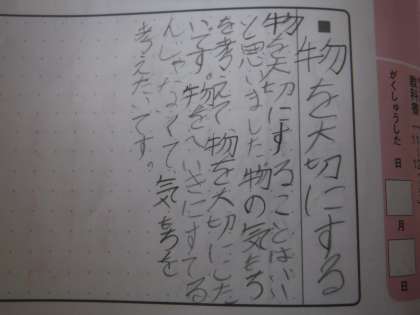 教科書
がくしゅうした日
月
日
■物を大切にする
物を大切にすることはいい
と思いました。物の気もち
を考えて物を大切にした
いです。物をへいきにすてる
んじゃなくて、気もちを
考えたいです。